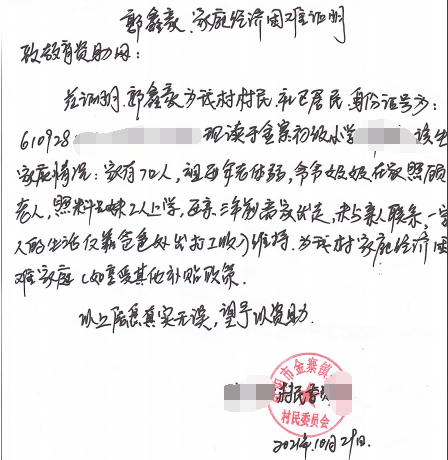 郭鑫豪家庭经济困难证明
致教育资助网:
兹证明,郭鑫豪为我村村民,身份证号为:
610928 现读于金寨初级小学 该生
家庭情况:家有7口人,祖母年老体弱,爷爷奶奶在家照顾
老人,照料兄妹2人上学,母亲三年前离家出走,未与家人联系,一家
人的生活仅靠爸爸外出打工收入维持。为我村家庭经济困
难家庭(如享受其他补贴政策.
以上信息真实无误,望予以资助.
村民委员
市金寨镇
村民委员会
2021年10月29日.